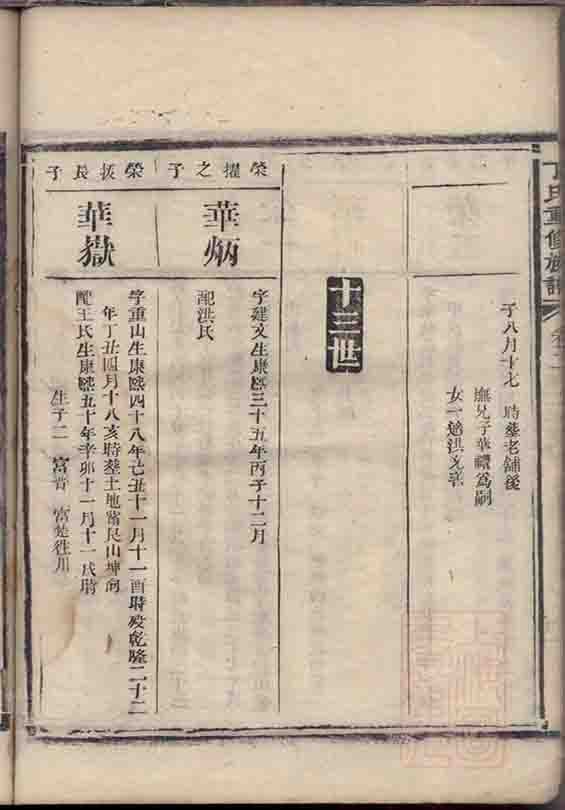 丁氏重修族譜 卷二
子八月十七 時塟老鋪後
撫兄子華禮爲嗣
女一適洪
十三世
榮擢之子
華炳
字建文生康熙三十五年丙子十二月
配洪氏
榮拔長子
華嶽
字重山生康熙四十八年己丑十一月十一酉時殁乾隆二十二
年丁丑四月十八亥時塟土地窩艮山坤向
配王氏生康熙五十年辛卯十一月十一戌時
生子二 富貴 富楚徃川